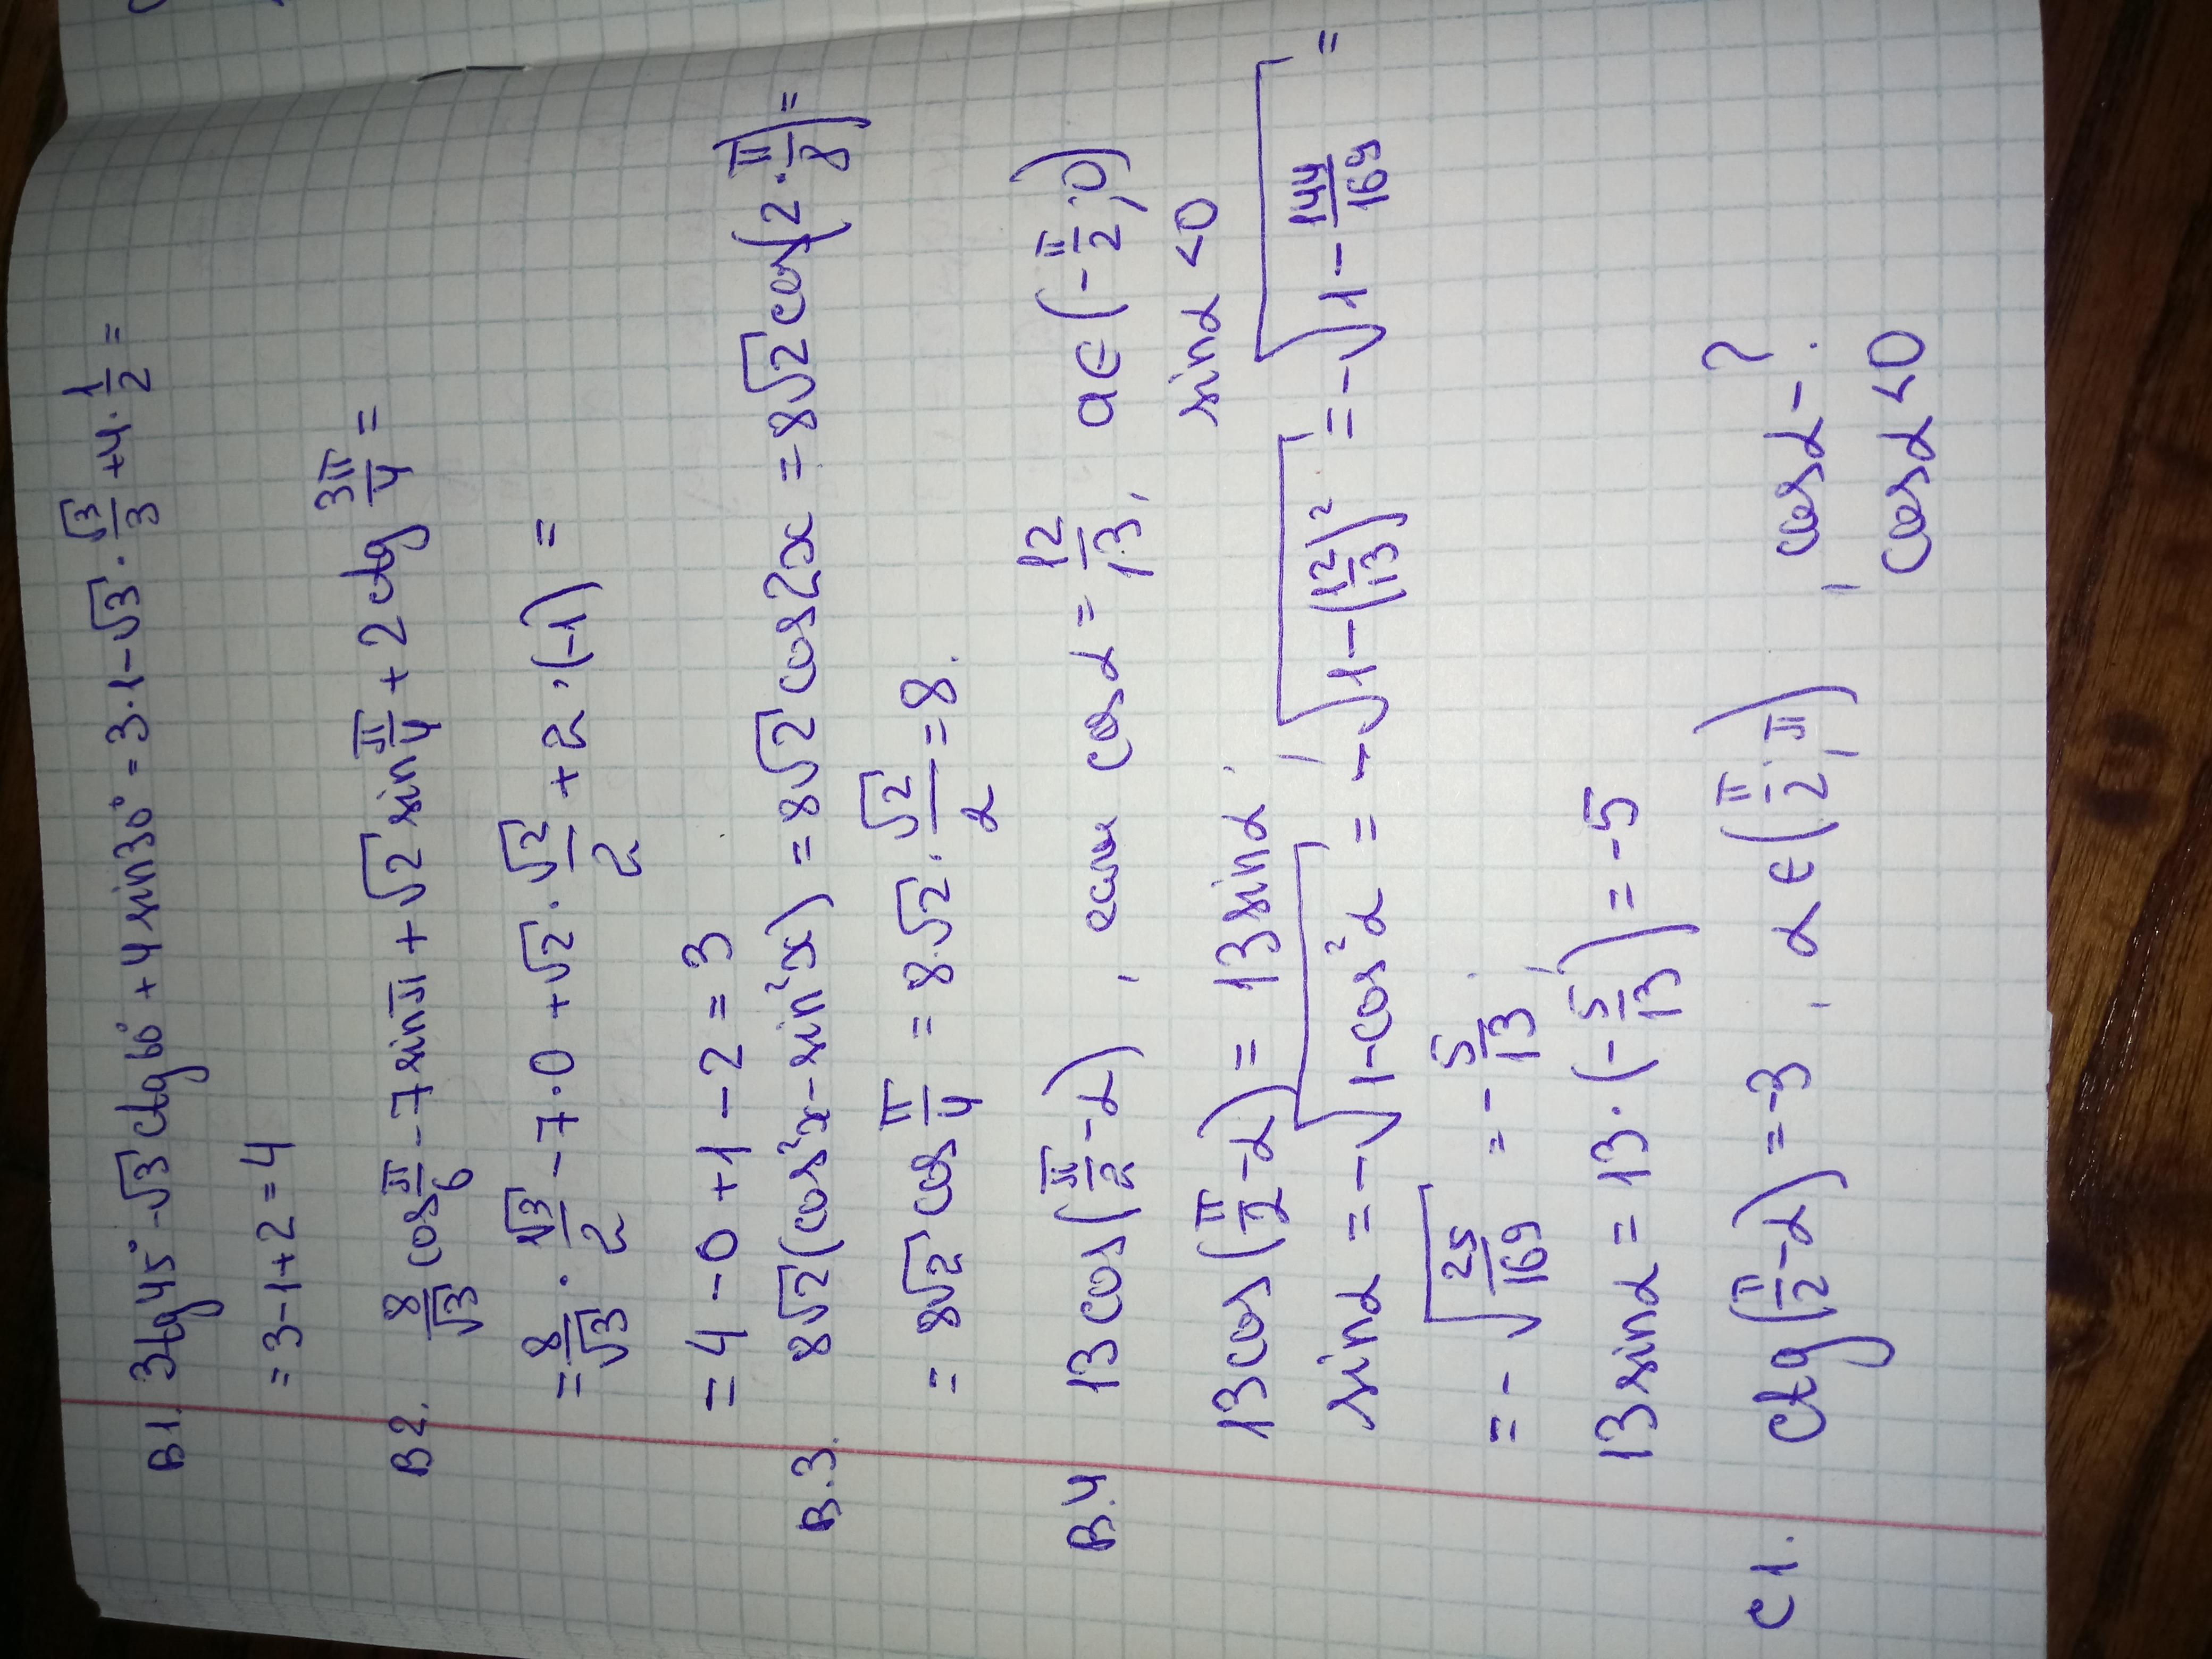 B1. 3tg45° - √3 ctg60° + 4 sin30° = 3·1 - √3 · √3/3 + 4 · 1/2 =
= 3 - 1 + 2 = 4
B2. 8/√3 cos π/6 - 7 sin π + √2 sin π/4 + 2 ctg 3π/4 =
= 8/√3 · √3/2 - 7·0 + √2 · √2/2 + 2 · (-1) =
= 4 - 0 + 1 - 2 = 3
B.3. 8√2 (cos²x - sin²x) = 8√2 cos2x = 8√2 cos(2 · π/8) =
= 8√2 cos π/4 = 8·√2 · √2/2 = 8.
B.4 13 cos(π/2 - α), если cos α = 12/13, a ∈ (-π/2; 0)
sin α < 0
13 cos(π/2 - α) = 13 sin α;
sin α = -√(1 - cos²α) = -√(1 - (12/13)²) = -√(1 - 144/169) =
= -√(25/169) = -5/13;
13 sin α = 13 · (-5/13) = -5
C1. ctg(π/2 - α) = -3, α ∈ (π/2; π), cos α - ?
cos α < 0